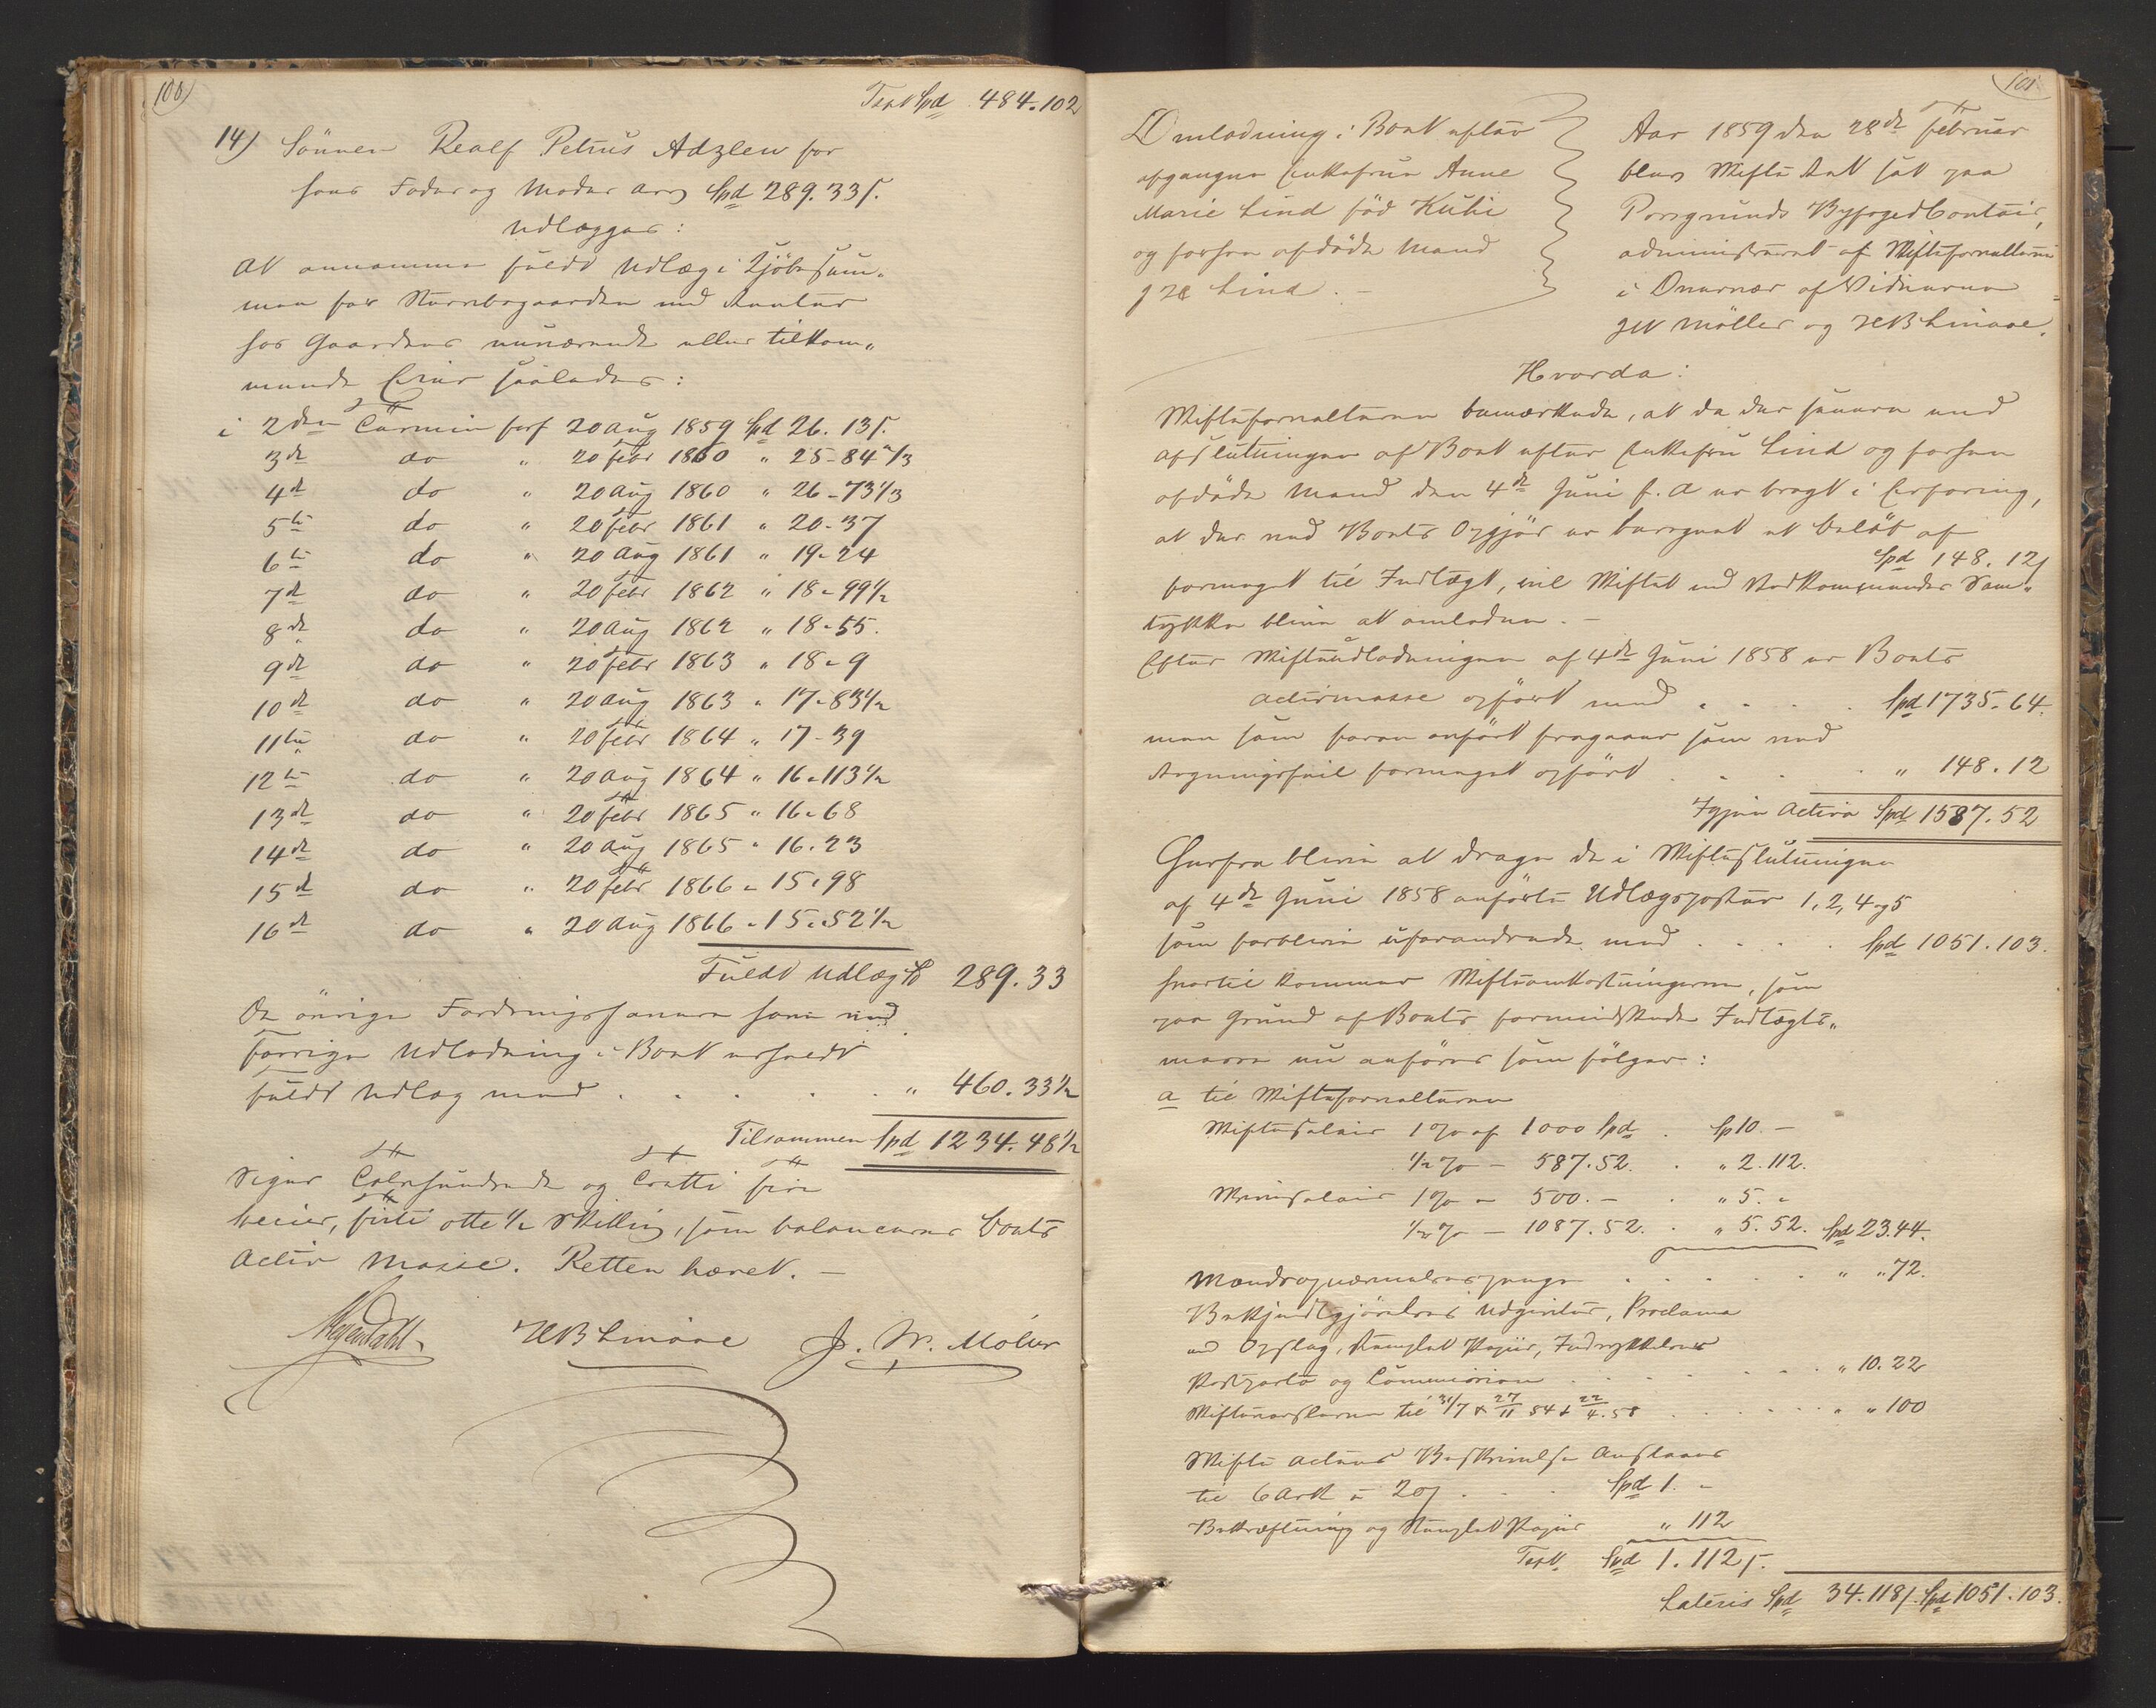 100)
Trspt Spd 484.102
14) Sønnen Realf Petrus Adzlew for
hans Fader og Moder Arv Spd 289.33 s.
udlægges:
At annamme fuldt Udlæg i Kjøbesum-
men for Størrbogaarden med Renter
hos Gaardens nuværende eller tilkom-
mende Eier saaledes:
i 2den Termin forf 20 Aug 1859 Spd 26. 13 s.
3de do " 20 febr 1860 " 25-84 2/3
4de do " 20 Aug 1860 " 26-73 1/3
5te do " 20 febr 1861 " 20-37
6te do " 20 Aug 1861 " 19-24
7de do " 20 febr 1862 " 18-99 1/2
8de do " 20 Aug 1862 " 18-55.
9de do " 20 febr 1863 " 18-9
10de do " 20 Aug 1863 " 17-83 1/2
11te do " 20 febr 1864 " 17-39
12te do " 20 Aug 1864 " 16-113 1/2
13de do " 20 febr 1865 " 16-68
14de do " 20 Aug 1865 " 16.23
15de do " 20 febr 1866 " 15.98
16de do " 20 Aug 1866 " 15.52 1/2
Fuldt Udlæg Spd 289.33
De øvrige Fordringshavere have ved
forrige Udlodning i Boet erholdt
fuldt Udlæg med . . . . " 460.33 1/2
Tilsammen Spd 1234.48 1/2
siger Tolvhundrede og Tretti fire
Species, firti otte 1/2 Skilling, som balancerer Boets
Activ Masse. Retten hævet. —
HB Linaae J. W. Møller
101
Omlodning i Boet efter
afgangne Enkefrue Anne
Marie Lind fød Kühi
og forhen afdøde Mand
Lind. —
Aar 1859 den 28de februar
blev Skifte Ret sat paa
Porsgrunds Byfogedcontoir,
administreret af Skifteforvalteren
i Overvær af Vidnerne
JW Møller og HB Linaae.
Hvorda:
Skifteforvalteren bemærkede, at da der senere end
afslutningen af Boet efter Enkefru Lind og forhen
afdøde Mand den 4de Juni f. A er bragt i Erfaring,
at der ved Boets Opgjør er beregnet et Beløb af
Spd 148. 12 s
formeget til Indtægt, vil Skiftet med Vedkommendes Sam-
tykke blive at omlodne. —
Efter Skifteudlodningen af 4de Juni 1858 er Boets
Activmasse opført med . . . . Spd 1735.64.
men som foran anført fragaaer som ved
Regningsfeil formeget opført . . . . " 148.12
Igjen Activa Spd 1587.52
Herfra blive at drage de i Skifteslutningen
af 4de Juni 1858 anførte Udlægsposter 1, 2, 4 og 5
som forblive uforandrede med . . . . Spd 1051.103.
hvortil kommer Skifteomkostningerne, som
paa Grund af Boets formindskede Indtægts-
masse nu anføres som følger:
a til Skifteforvalteren
Skiftesalair 1 % af 1000 Spd . Sp 10. —
1/2 % — 587.52. . " 2.112.
Skrivsalair 1 % — 500. — . " 5. "
1/2 % — 1087.52. . " 5.52. Spd 23.44.
Mændsopnævnelsespenge . . . . " " 72.
Bekjendtgjørelses Udgivter, Proclama
med Opslag, stemplet Papiir, Indrykkelses
Postporto og Commission . . . . " 10.22
Skifteværslerne til 31/7 & 27/11 54 & 22/4.58 . . . . " " 100
Skifte Actens Beskrivelse Anslaaes
til 6 Ark a 20 s . . . Spd 1. —
Bekræftning og Stemplet Papiir " 112
Trspt Spd 1.112 s.
Lateris Spd 34.118 s. Spd 1051.103.